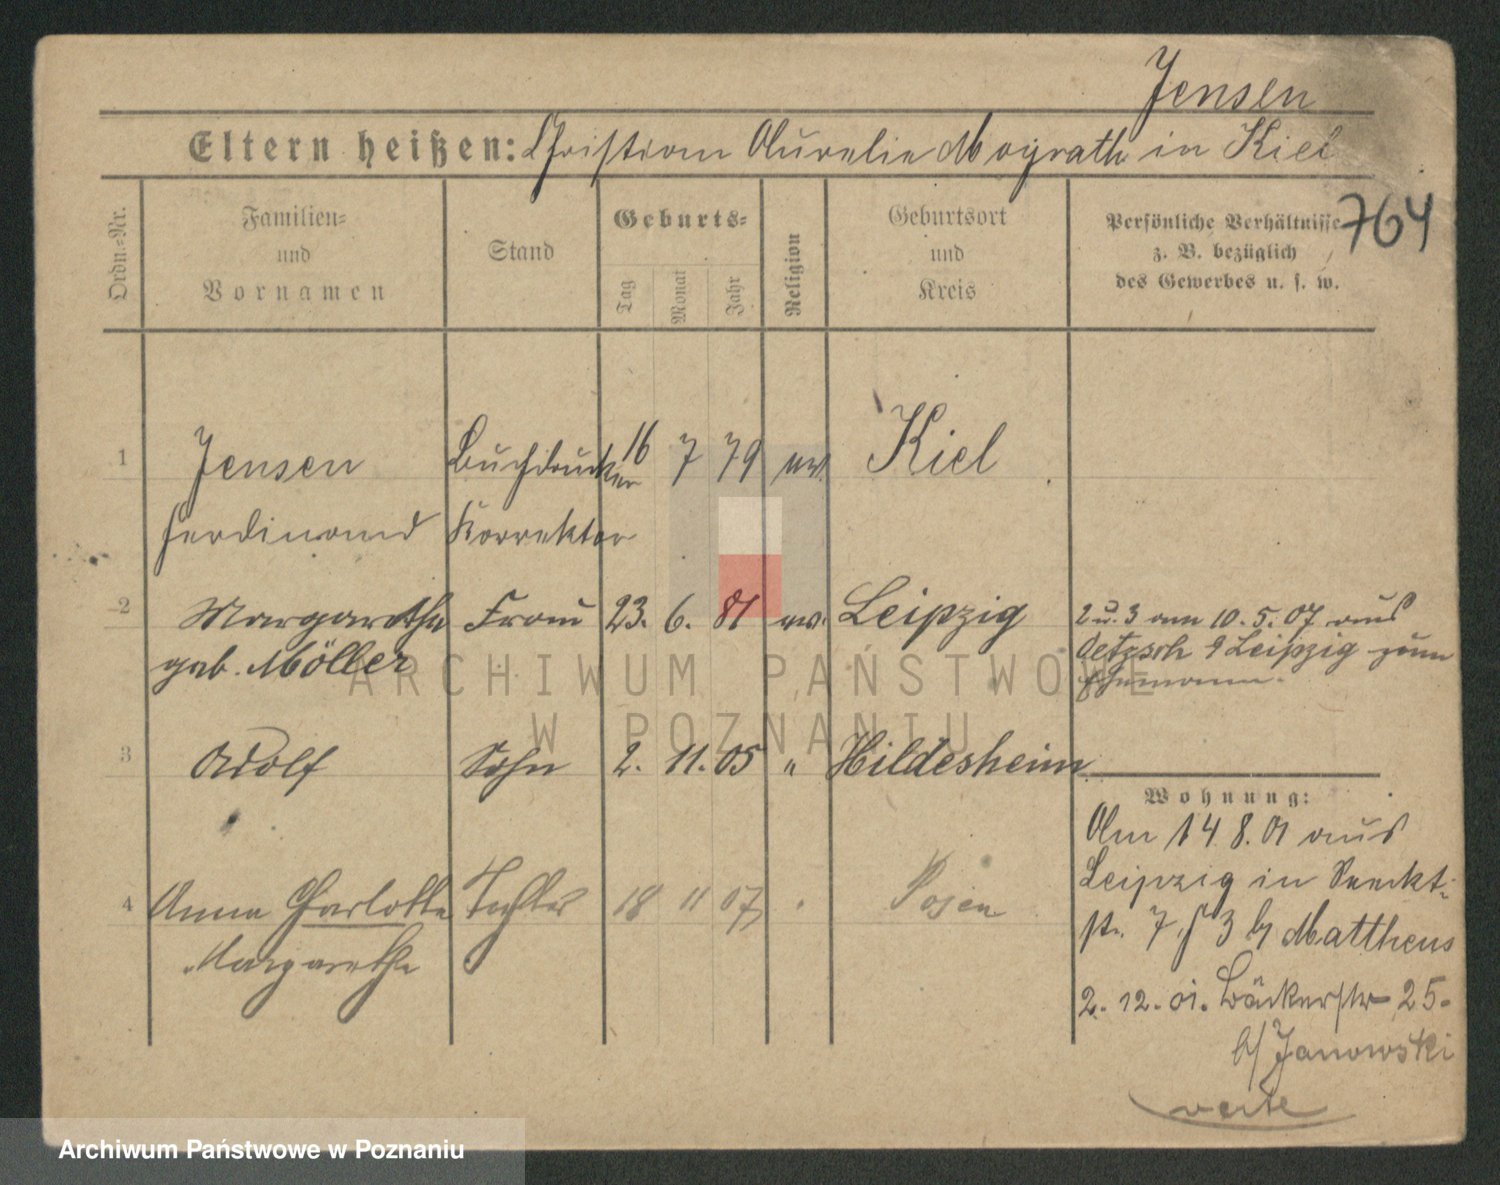 Jensen
Eltern heißen: Christian Aurelie Mayrath in Kiel
764
Ordn.-Nr.
Familien-
und
Vornamen
Stand
Geburts-
Tag
Monat
Jahr
Religion
Geburtsort
und
Kreis
Persönliche Verhältnisse
z. B. bezüglich
des Gewerbes u. s. w.
1 Jensen Buchdrucker 16 7 79 ev. Kiel
Ferdinand Korrektor
2 Margarethe Frau 23. 6. 81 ev. Leipzig
geb. Möller
2 u. 3 am 10. 5. 07 aus
Oetzsch Leipzig zum
Ehemann.
3 Adolf Sohn 2. 11. 05 " Hildesheim
4 Anna Charlotte Tochter 18 11 07 Posen
Margarethe
Wohnung:
Am 14 8. 01 aus
Leipzig in
str. 7, 3 b/ Mattheus
2. 12. 01. Bäckerstr 25.
b/ Janowski
verte
ARCHIWUM PAŃSTWOWE
W POZNANIU
Archiwum Państwowe w Poznaniu